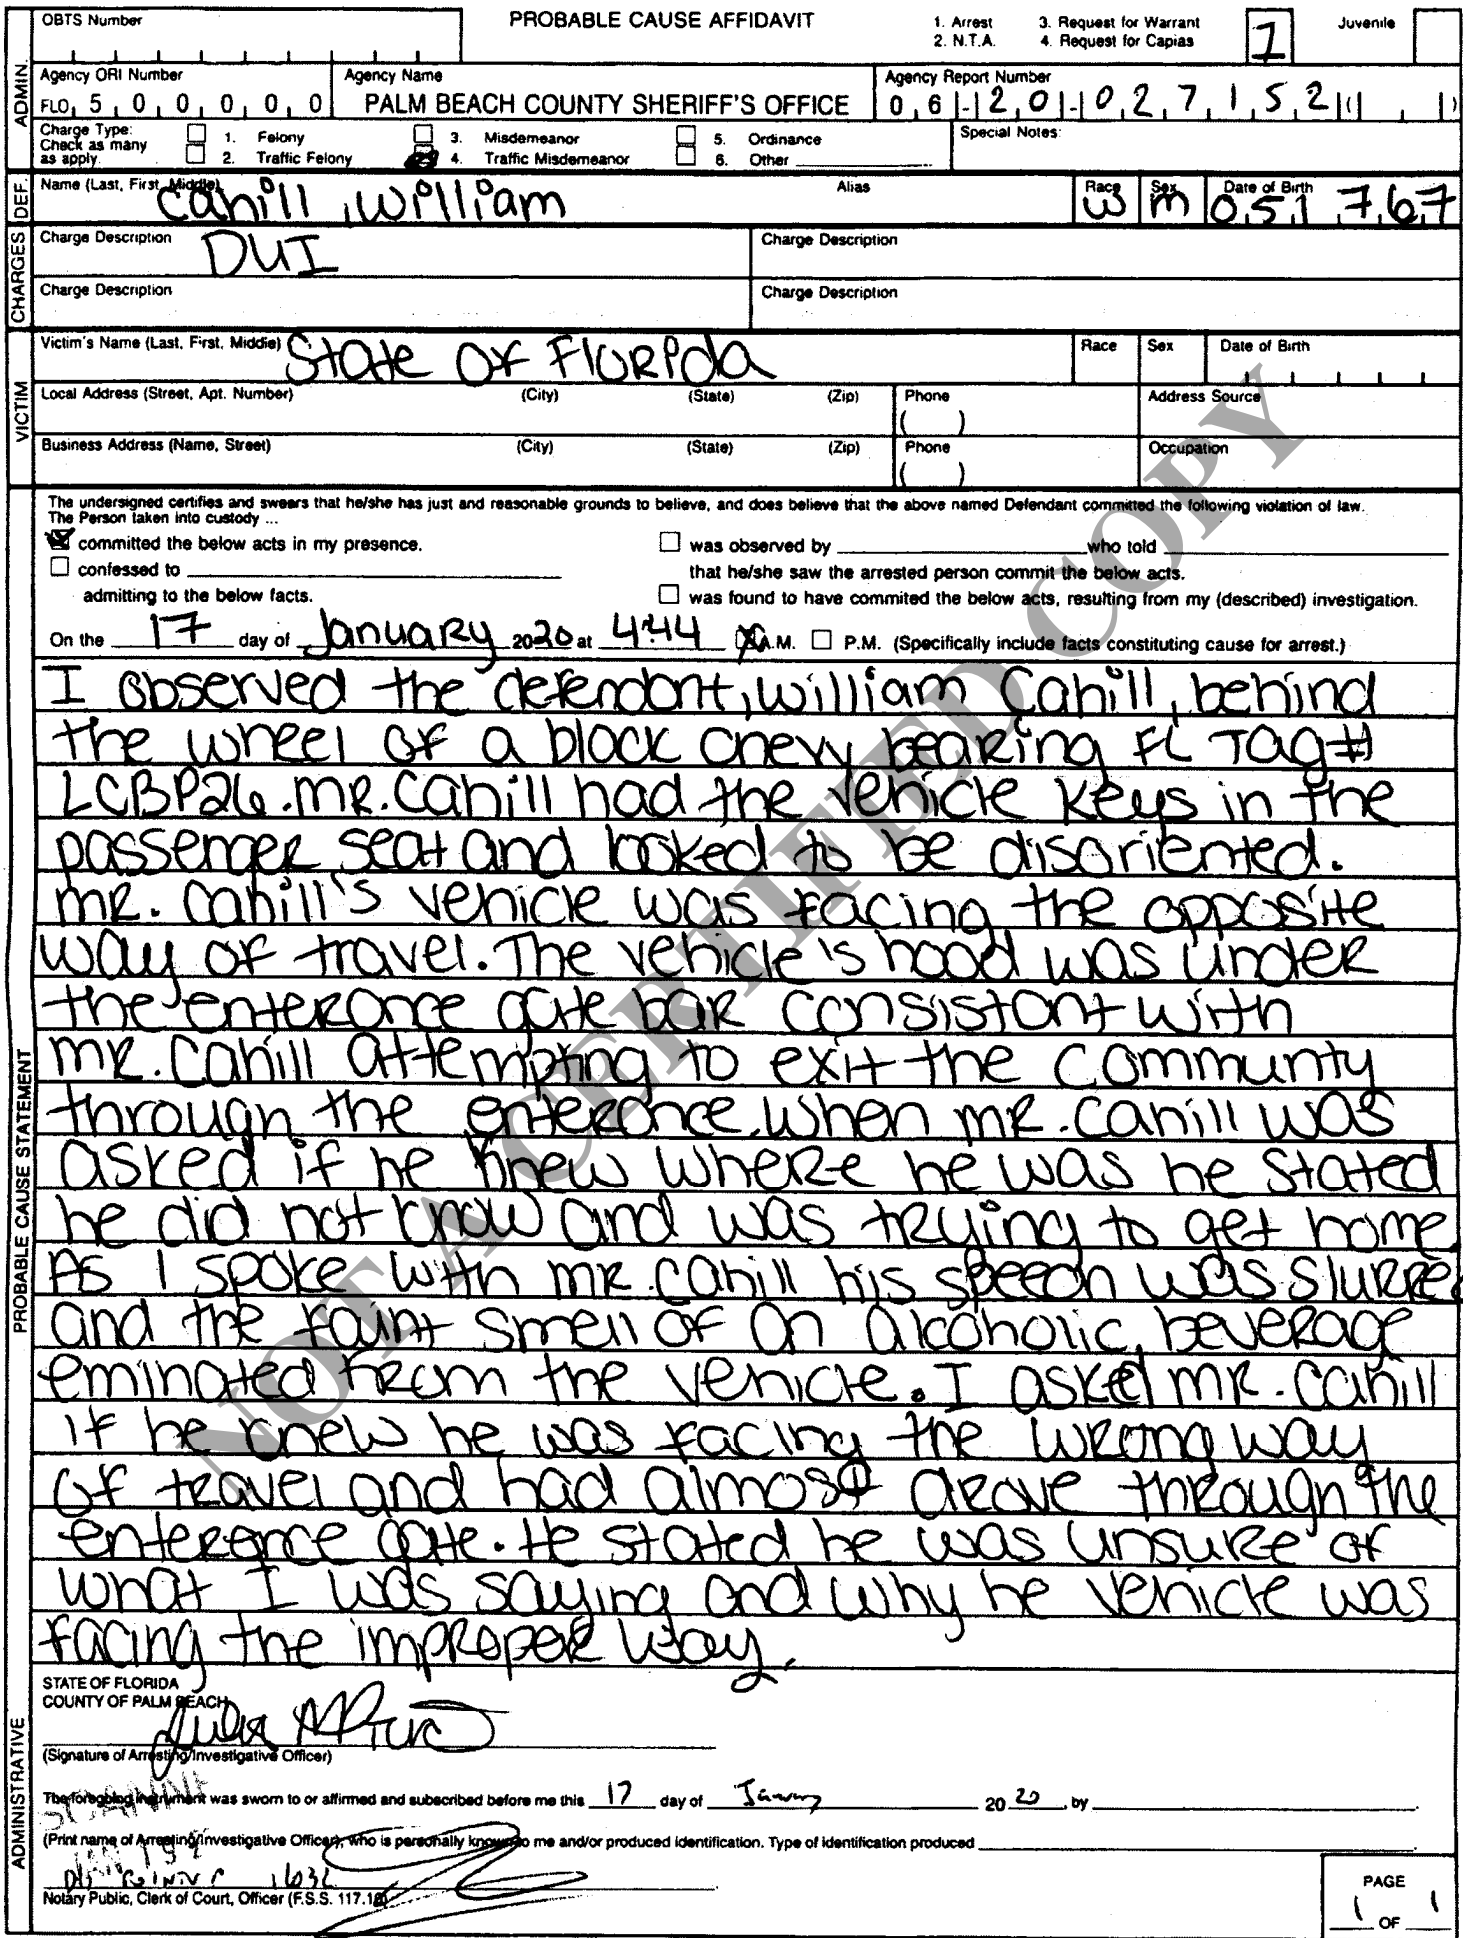 OBTS Number
PROBABLE CAUSE AFFIDAVIT
1. Arrest 3. Request for Warrant
2. N.T.A. 4. Request for Capias
1
Juvenile
ADMIN.
Agency ORI Number
FLO 5 0 0 0 0 0 0
Agency Name
PALM BEACH COUNTY SHERIFF'S OFFICE
Agency Report Number
0 6 - 2 0 - 0 2 7 1 5 2
Charge Type:
Check as many
as apply.
1. Felony 3. Misdemeanor 5. Ordinance
2. Traffic Felony 4. Traffic Misdemeanor 6. Other
Special Notes:
DEF.
Name (Last, First, Middle)
Cahill, William
Alias
Race
W
Sex
M
Date of Birth
05 17 67
CHARGES
Charge Description
DUI
Charge Description
Charge Description
Charge Description
VICTIM
Victim's Name (Last, First, Middle)
State of Florida
Race
Sex
Date of Birth
Local Address (Street, Apt. Number) (City) (State) (Zip)
Phone
( )
Address Source
Business Address (Name, Street) (City) (State) (Zip)
Phone
( )
Occupation
PROBABLE CAUSE STATEMENT
The undersigned certifies and swears that he/she has just and reasonable grounds to believe, and does believe that the above named Defendant committed the following violation of law.
The Person taken into custody ...
committed the below acts in my presence.
confessed to
admitting to the below facts.
was observed by who told
that he/she saw the arrested person commit the below acts.
was found to have commited the below acts, resulting from my (described) investigation.
On the 17 day of January 2020 at 4:44 A.M. P.M. (Specifically include facts constituting cause for arrest.)
I observed the defendant, William Cahill, behind
the wheel of a black chevy bearing FL Tag#
LCBP26. MR. Cahill had the vehicle keys in the
passenger seat and looked to be disoriented.
MR. Cahill's vehicle was facing the opposite
way of travel. The vehicle's hood was under
the enterance gate bar consistant with
MR. Cahill attempting to exit the communty
through the enterance. When MR. Cahill was
asked if he knew where he was he stated
he did not know and was trying to get home.
As I spoke with MR. Cahill his speech was slurred
and the faint smell of an alcoholic beverage
eminated from the vehicle. I asked MR. Cahill
if he knew he was facing the wrong way
of travel and had almost drove through the
enterance gate. He stated he was unsure of
what I was saying and why he vehicle was
facing the improper way.
NOT A CERTIFIED COPY
ADMINISTRATIVE
STATE OF FLORIDA
COUNTY OF PALM BEACH
(Signature of Arresting/Investigative Officer)
The foregoing instrument was sworn to or affirmed and subscribed before me this 17 day of January 20 20, by
(Print name of Arresting/Investigative Officer), who is personally known to me and/or produced identification. Type of identification produced
Notary Public, Clerk of Court, Officer (F.S.S. 117.10)
PAGE
1 OF 1